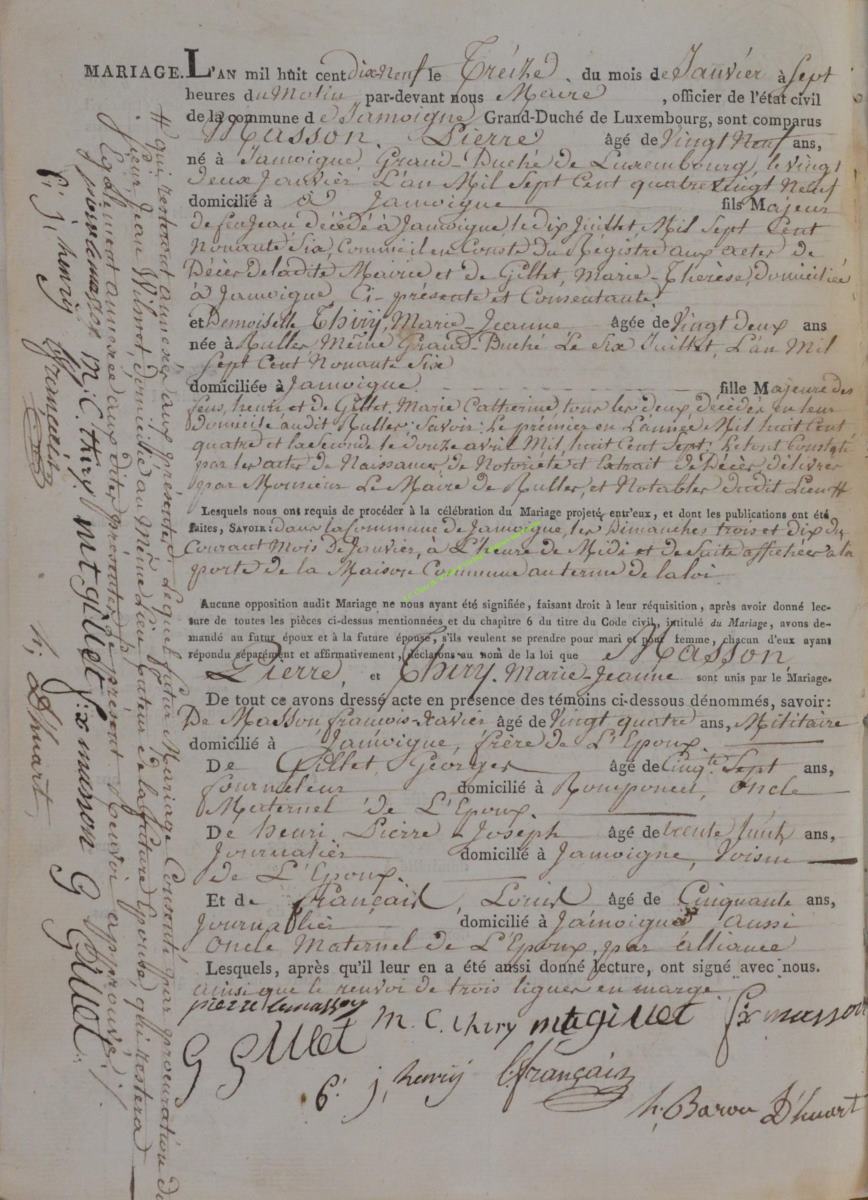 MARIAGE. L'AN mil huit cent dix Neuf le Treize du mois de Janvier à Sept
heures du Matin par-devant nous Maire, officier de l'état civil
de la commune de Jamoigne Grand-Duché de Luxembourg, sont comparus
Masson, Pierre âgé de Vingt Neuf ans,
né à Jamoigne, Grand-Duché de Luxembourg, le vingt
deux Janvier L'an Mil Sept Cent quatre vingt Neuf
domicilié à Jamoigne fils Majeur
de feu Jean décédé à Jamoigne le dix Juillet, Mil Sept Cent
Nonante Six, Comme il en Conste du Registre aux actes de
Décès de ladite Mairie et de Gillet, Marie-Therèse, domiciliée
à Jamoigne Ci-présente et Consentante.
et Demoiselle Thiry, Marie-Jeanne âgée de Vingt Deux ans
née à Rulles Même Grand-Duché Le Six Juillet, L'an Mil
Sept Cent Nonante Six
domiciliée à Jamoigne fille Majeure des
feus, henri et de Gillet Marie Catherine, tous les deux décédés en leur
domicile audit Rulles; Savoir: Le premier en L'année Mil huit Cent
quatre et la seconde le douze avril Mil, huit Cent Sept; Le tout Constaté
par les actes de Naissance de Notoriété et Extrait de Décès délivrés
par Monsieur Le Maire de Rulles, et Notables dudit Lieu #
Lesquels nous ont requis de procéder à la célébration du Mariage projeté entr'eux, et dont les publications ont été
faites, SAVOIR: dans la Commune de Jamoigne, les Dimanches trois et dix du
Courant Mois de Janvier, à L'heure de Midi et de Suite affichées à la
porte de la Maison Commune au terme de la loi
Aucune opposition audit Mariage ne nous ayant été signifiée, faisant droit à leur réquisition, après avoir donné lec-
ture de toutes les pièces ci-dessus mentionnées et du chapitre 6 du titre du Code civil, intitulé du Mariage, avons de-
mandé au futur époux et à la future épouse, s'ils veulent se prendre pour mari et pour femme, chacun d'eux ayant
répondu séparément et affirmativement, déclarons au nom de la loi que Masson,
Pierre, et Thiry, Marie-Jeanne sont unis par le Mariage.
De tout ce avons dressé acte en présence des témoins ci-dessous dénommés, savoir:
De Masson francois-Xavier âgé de Vingt quatre ans, Militaire
domicilié à Jamoigne, frère de L'Epoux.
De Gillet, Georges âgé de Cinqte Sept ans,
domicilié à Romponcel, Oncle
Maternel de L'Epoux.
De henri Pierre Joseph âgé de trente huit ans,
Journalier domicilié à Jamoigne, Voisin
de L'Epoux.
Et de français, Louis âgé de Cinquante ans,
Journallier domicilié à Jamoigne aussi
Oncle Maternel de L'Epoux, par alliance
Lesquels, après qu'il leur en a été aussi donné lecture, ont signé avec nous.
ainsi que le renvoi de trois lignes en marge
pierre lemasson M. C. thiry mt gillet fx masson
G Gillet
j, henry français
h, Baron D'huart
# qui resteront annexés aux présentes, Lequel futur Mariage Consenti par procuration du
Sieur Jean Wilmet, domicilié au Même Lieu, tuteur de la future Epouse, qui restera
Egalement annexée aux dites présentes, le présent renvoi approuvé.
pierre lemasson M. C. thiry mt gillet fx masson G Gillet
j, henry français
h, D'huart